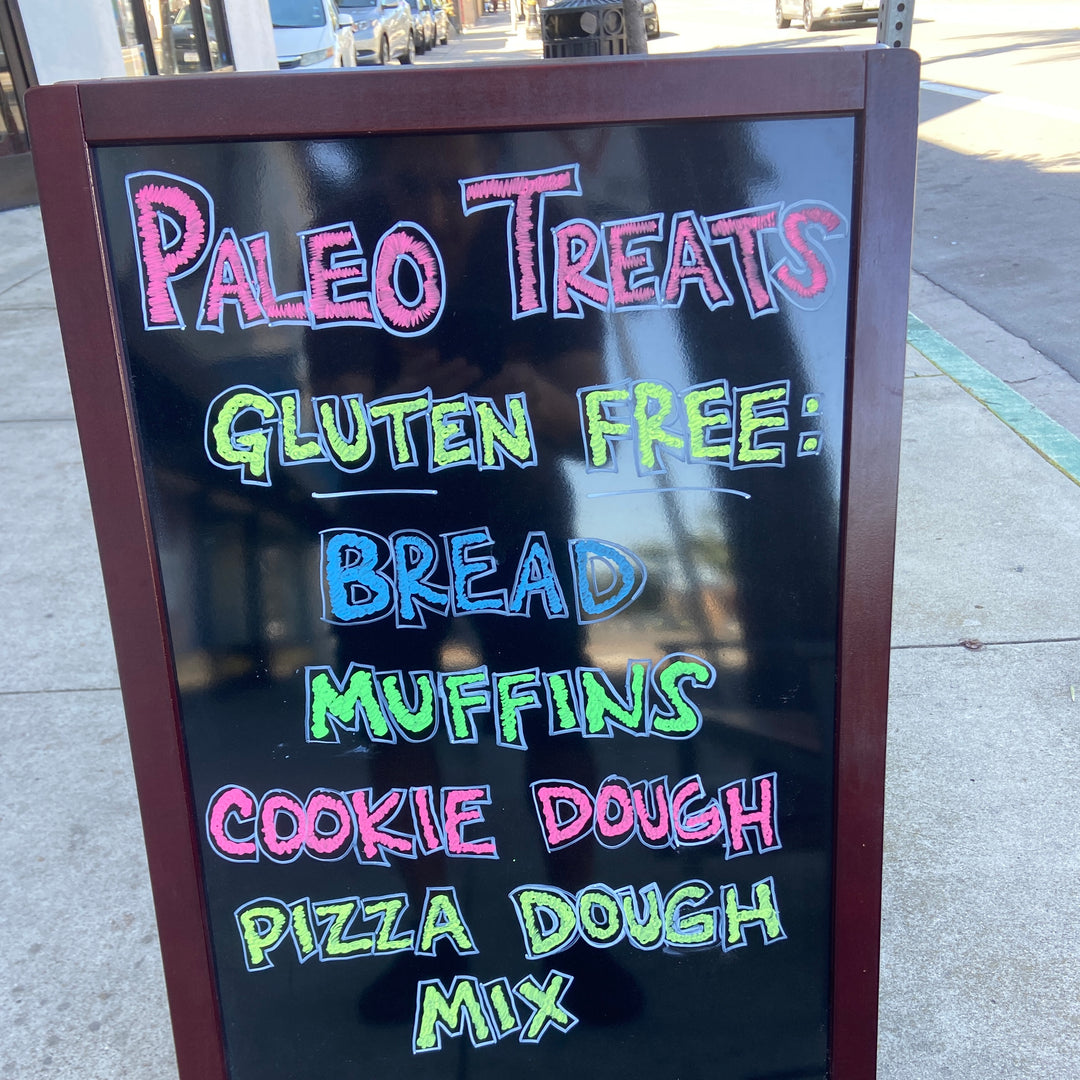 PALEO TREATS
GLUTEN FREE:
BREAD
MUFFINS
COOKIE DOUGH
PIZZA DOUGH
MIX